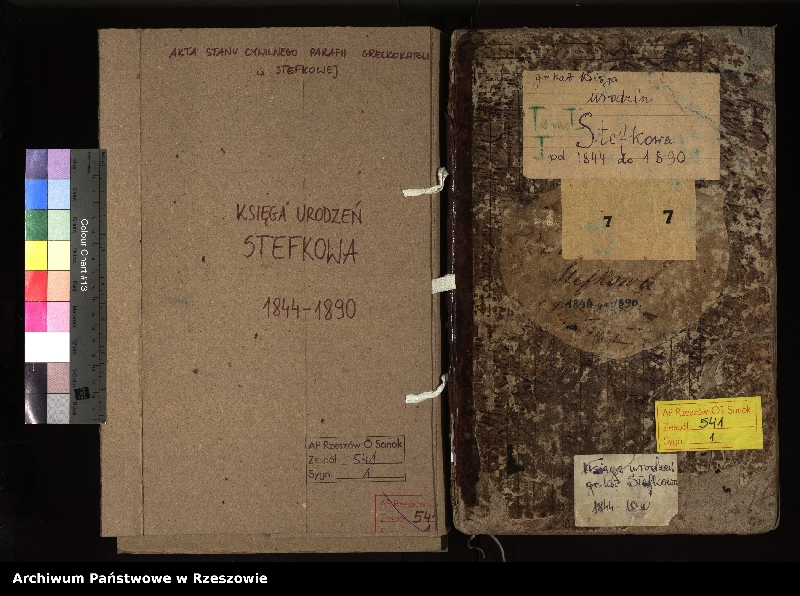 AKTA STANU CYWILNEGO PARAFII GRECKOKATOLI
w STEFKOWEJ
KSIĘGA URODZEŃ
STEFKOWA
1844-1890
AP Rzeszów-O Sanok
Zespół 541
Sygn. 1
AP Rzeszów
Zespół 54
gr. kat Księga
urodzin
Tom I
Stefkowa
od 1844 do 1890
7 7
Stefkowa
AP Rzeszów-OT Sanok
Zespół 541
Sygn. 1
Księga urodzeń
gr. kat Stefkowa
1844
Colour Chart #13
Archiwum Państwowe w Rzeszowie